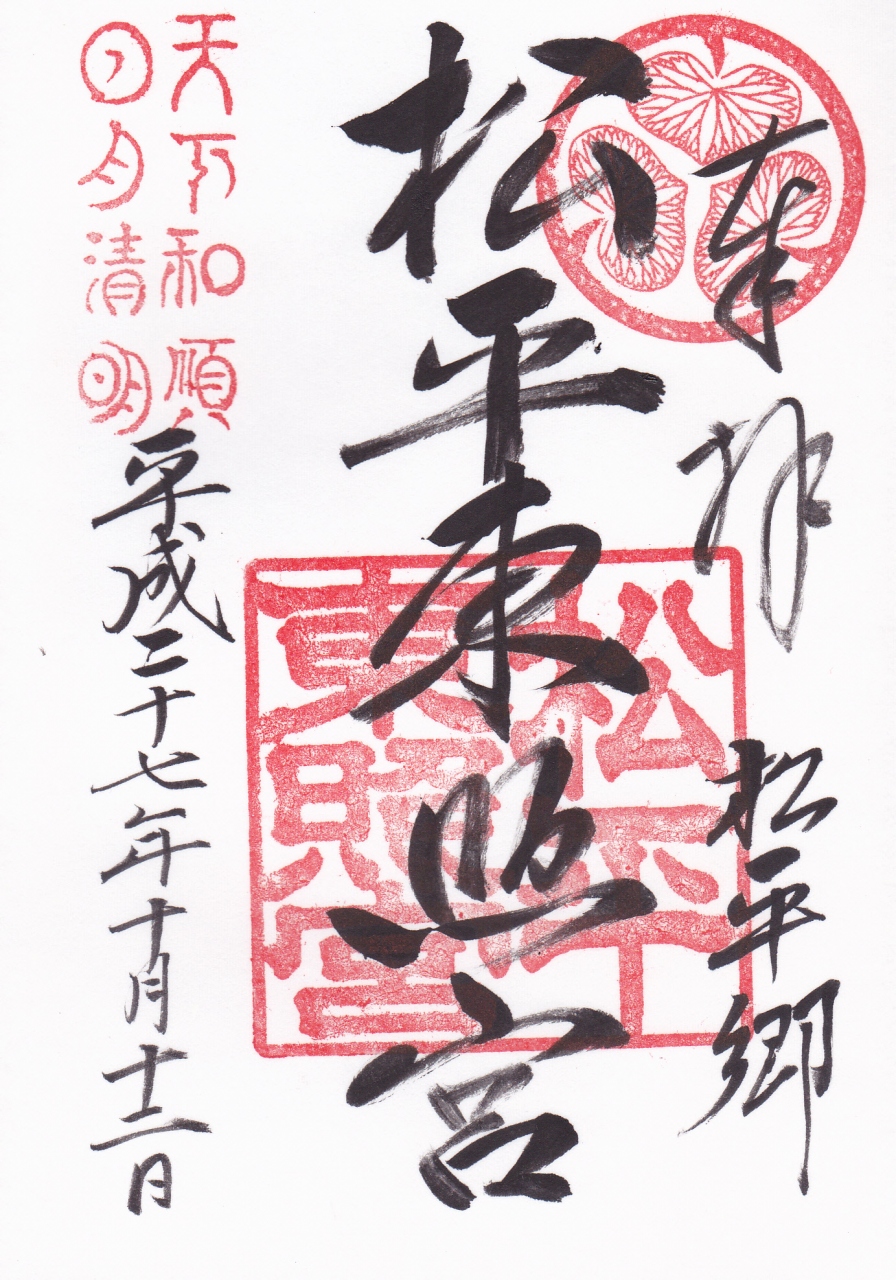 奉拝
松平郷
松平東照宮
松平
東照宮
天下和順
日月清明
平成二十七年十月十二日